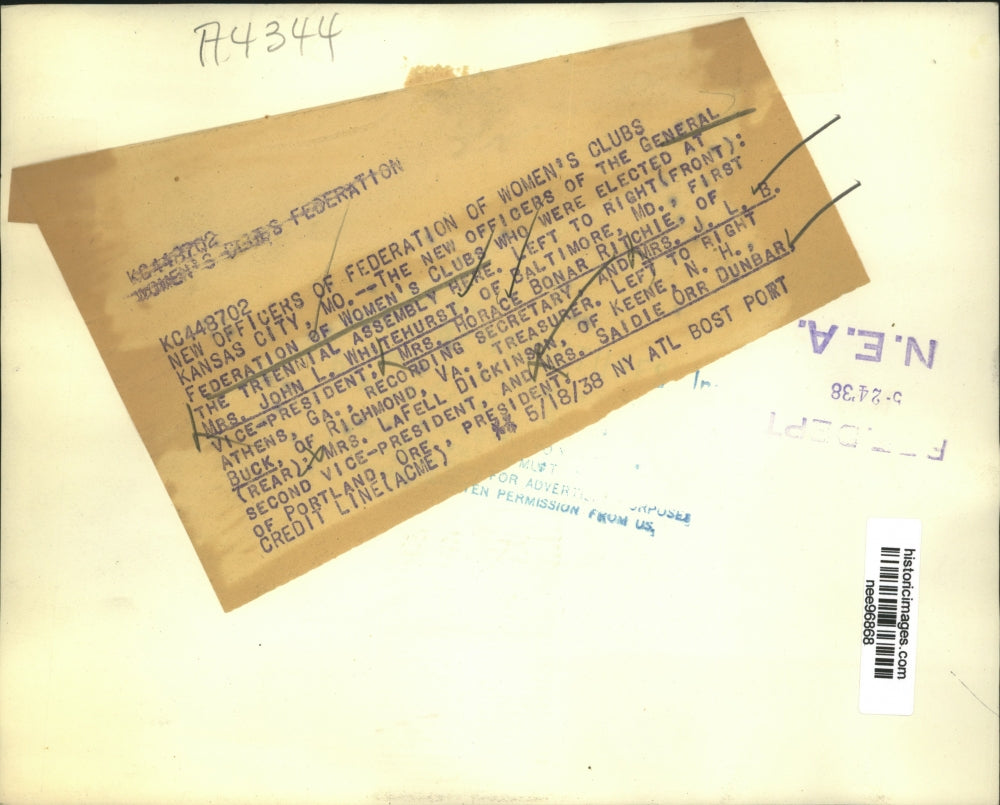 A4344
KC448702
WOMEN'S CLUB'S FEDERATION
KC448702
NEW OFFICERS OF FEDERATION OF WOMEN'S CLUBS
KANSAS CITY, MO.--THE NEW OFFICERS OF THE GENERAL
FEDERATION OF WOMEN'S CLUBS WHO WERE ELECTED AT
THE TRIENNIAL ASSEMBLY HERE. LEFT TO RIGHT(FRONT):
MRS. JOHN L. WHITEHURST, OF BALTIMORE, MD., FIRST
VICE-PRESIDENT; MRS. HORACE BONAR RITCHIE, OF
ATHENS, GA., RECORDING SECRETARY AND MRS. J. L. B.
BUCK, OF RICHMOND, VA., TREASURER. LEFT TO RIGHT
(REAR); MRS. LAFELL DICKINSON, OF KEENE, N. H.,
SECOND VICE-PRESIDENT, AND MRS. SAIDIE ORR DUNBAR,
OF PORTLAND, ORE., PRESIDENT.
CREDIT LINE(ACME) 5/18/38 NY ATL BOST PORT
N.E.A.
5-24'38
DEPT
In
MUST
FOR ADVERT
PERMISSION FROM US
historicimages.com
nee96868